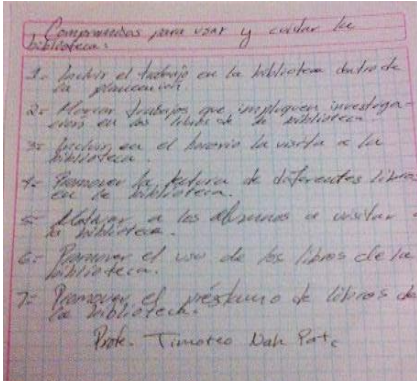 Compromisos para usar y cuidar la
biblioteca:
1- Incluir el trabajo en la biblioteca dentro de
la planeación.
2- trabajos que impliquen investiga
en los libros de la biblioteca.
3- Incluir en el horario la visita a la
biblioteca.
4- Promover la lectura de diferentes libros
en la biblioteca.
5- Motivar a los alumnos a visitar
la biblioteca.
6- Promover el uso de los libros de la
biblioteca.
7- Promover el préstamo de libros de
la biblioteca.
Profr. Timoteo